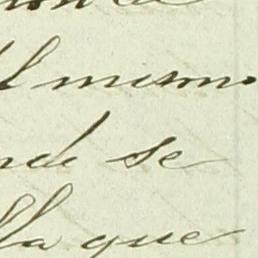 el mismo
nde se
lla que